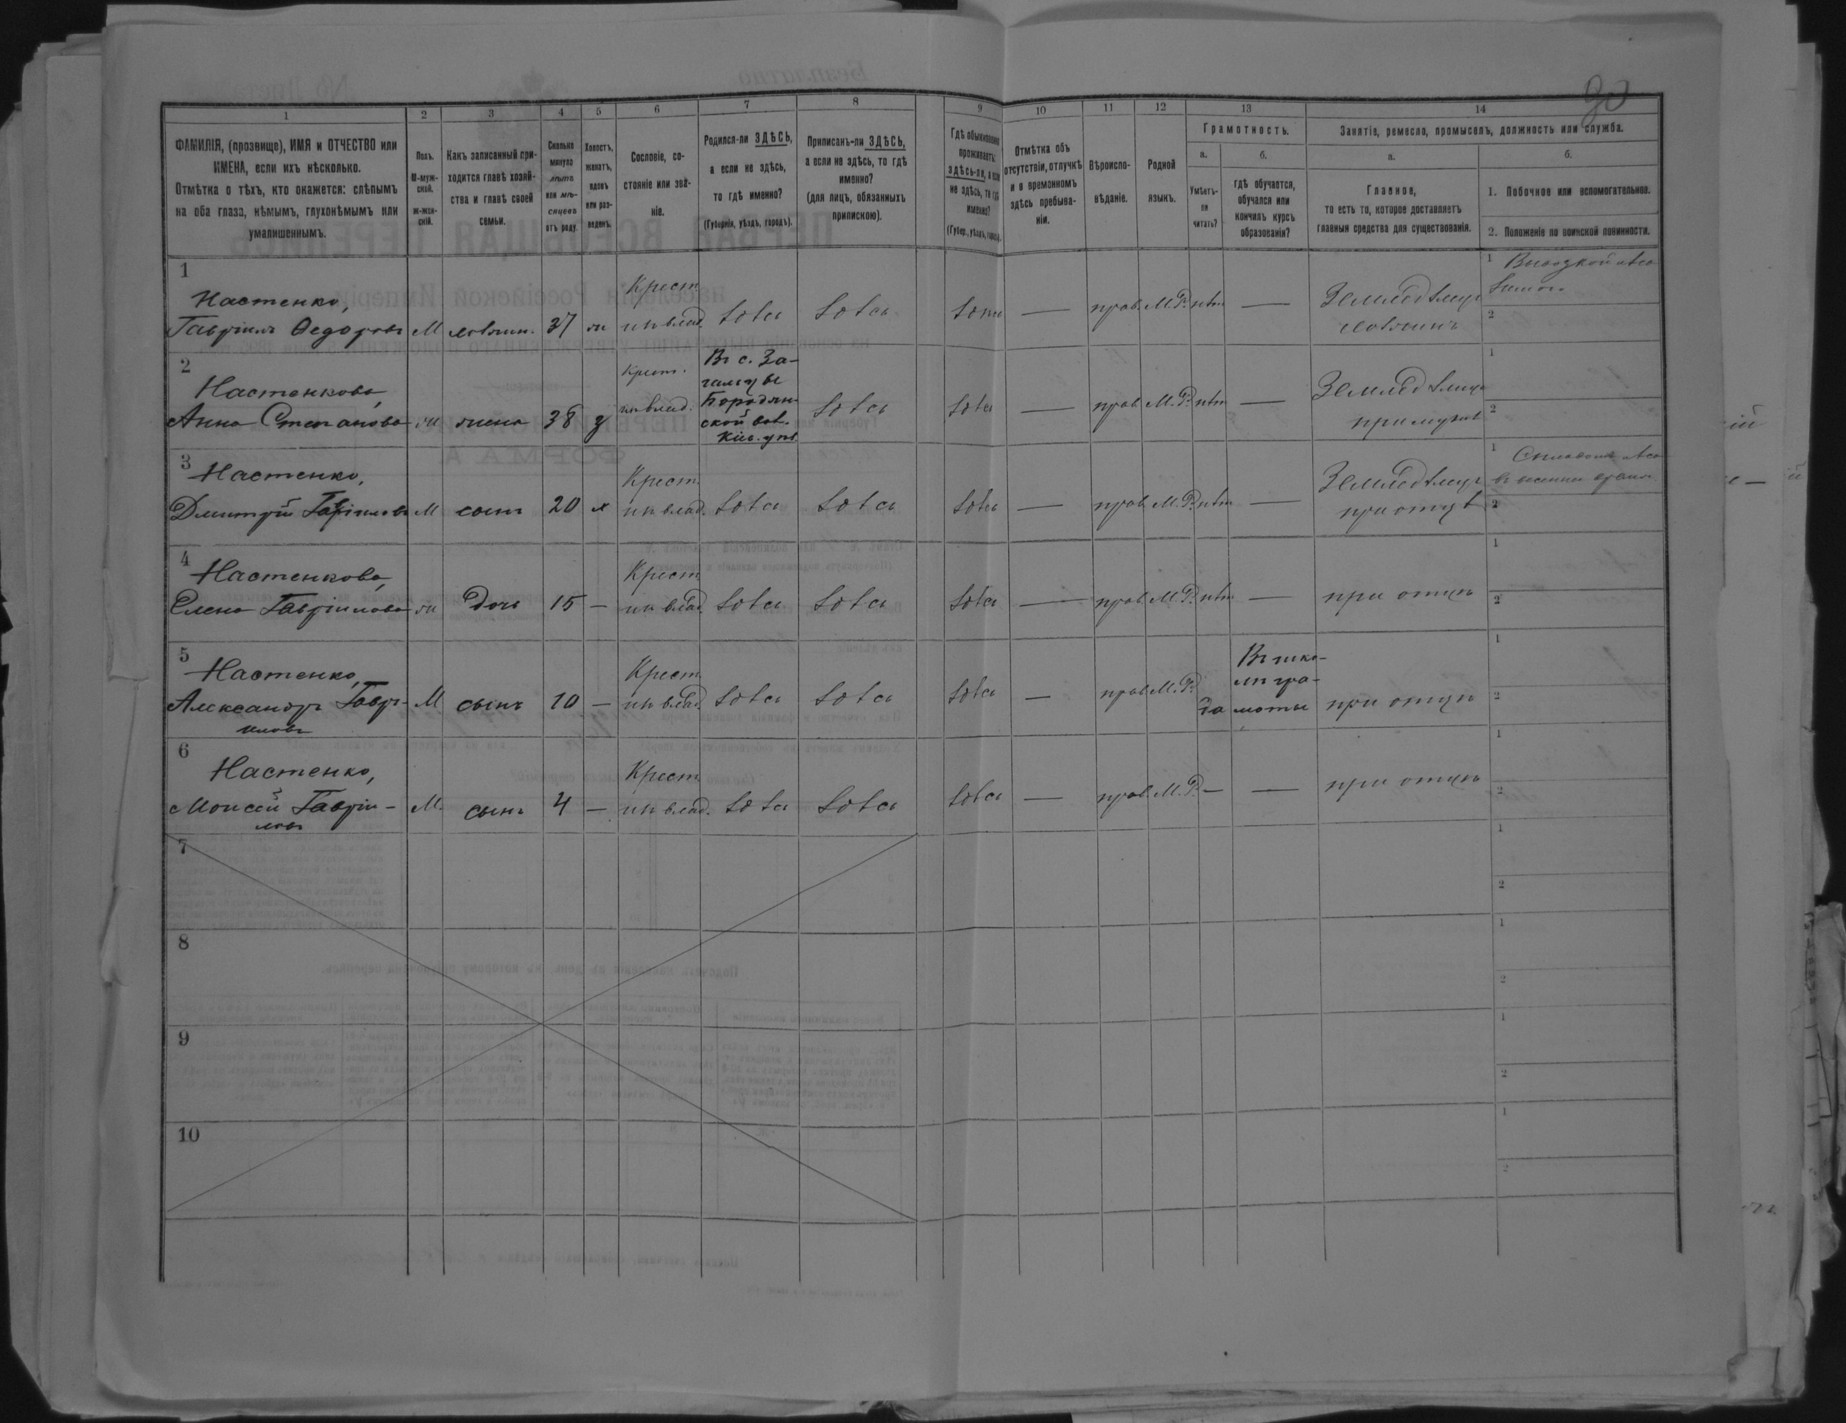 90
1 2 3 4 5 6 7 8 9 10 11 12 13 14
ФАМИЛІЯ, (прозвище), ИМЯ и ОТЧЕСТВО или
ИМЕНА, если ихъ нѣсколько.
Отмѣтка о тѣхъ, кто окажется: слѣпымъ
на оба глаза, нѣмымъ, глухонѣмымъ или
умалишеннымъ.
Полъ.
М-муж-
ской.
ж-жен-
скій.
Какъ записанный при-
ходится главѣ хозяй-
ства и главѣ своей
семьи.
Сколько
минуло
лѣтъ
или мѣ-
сяцевъ
отъ роду.
Холостъ,
женатъ,
вдовъ
или раз-
веденъ.
Сословіе, со-
стояніе или зва-
ніе.
Родился-ли ЗДѢСЬ,
а если не здѣсь,
то гдѣ именно?
(Губернія, уѣздъ, городъ).
Приписанъ-ли ЗДѢСЬ,
а если не здѣсь, то гдѣ
именно?
(для лицъ, обязанныхъ
припискою).
Гдѣ обыкновенно
проживаетъ:
здѣсь-ли, а если
не здѣсь, то гдѣ
именно?
(Губер., уѣздъ, городъ).
Отмѣтка объ
отсутствіи, отлучкѣ
и о временномъ
здѣсь пребыва-
ніи.
Вѣроиспо-
вѣданіе.
Родной
языкъ.
Грамотность.
а.
Умѣетъ-
ли
читать?
б.
гдѣ обучается,
обучался или
кончилъ курсъ
образованія?
Занятіе, ремесло, промыселъ, должность или служба.
а.
Главное,
то есть то, которое доставляетъ
главныя средства для существованія.
б.
1. Побочное или вспомогательное.
2. Положеніе по воинской повинности.
1
Настенко,
Гавріилъ Ѳедоровъ М хозяин. 37 ж
Крест
из влад. здѣсь здѣсь здѣсь — прав. М.Р. нѣт —
Земледѣлецъ
хозяинъ
1
2
2
Настенкова,
Анна Степанова ж жена 38 з
Крест.
из влад.
Въ с. За-
гальцы
Бородян-
ской вол.
Кіев. у.
здѣсь здѣсь — прав. М.Р. нѣт —
Земледѣлица
при мужѣ
1
2
3
Настенко,
Дмитрій Гавріиловъ М сынъ 20 х
Крест
из влад. здѣсь здѣсь здѣсь — прав. М.Р. нѣт —
Земледѣлецъ
при отцѣ
1
2
4
Настенкова,
Елена Гавріилова ж дочь 15 —
Крест
из влад. здѣсь здѣсь здѣсь — прав. М.Р. нѣт —
при отцѣ
1
2
5
Настенко,
Александръ Гаврі-
иловъ
М сынъ 10 —
Крест
из влад. здѣсь здѣсь здѣсь — прав. М.Р. да
Въ шко-
лѣ гра-
моты
при отцѣ
1
2
6
Настенко,
Моисей Гавріи-
ловъ
М. сынъ 4 —
Крест
из влад. здѣсь здѣсь здѣсь — прав. М.Р. — —
при отцѣ
1
2
7
1
2
8
1
2
9
1
2
10
1
2